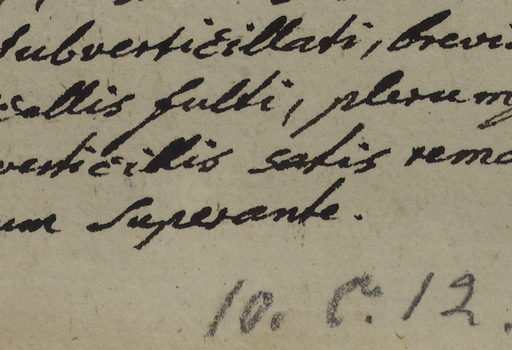 subverticillati, brevi
cellis fulti, plerumq
verticillis satis remo
um superante.
10. C. 12.